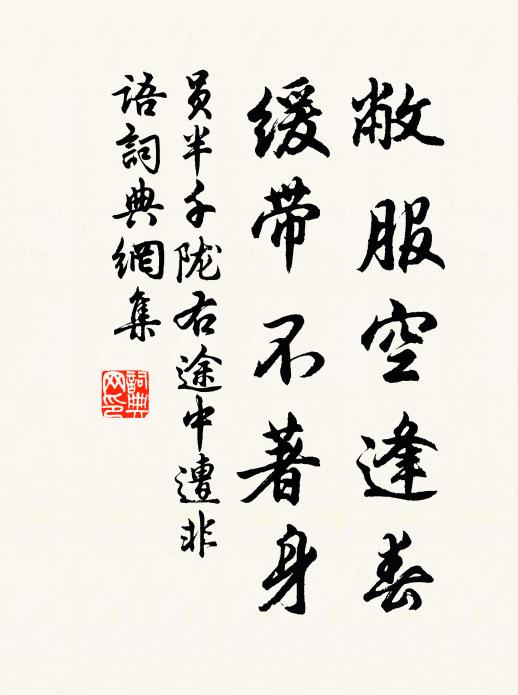 敝服空逢春
缓带不著身
员半千陇右途中遭非
语詞典網集
詞典
网印